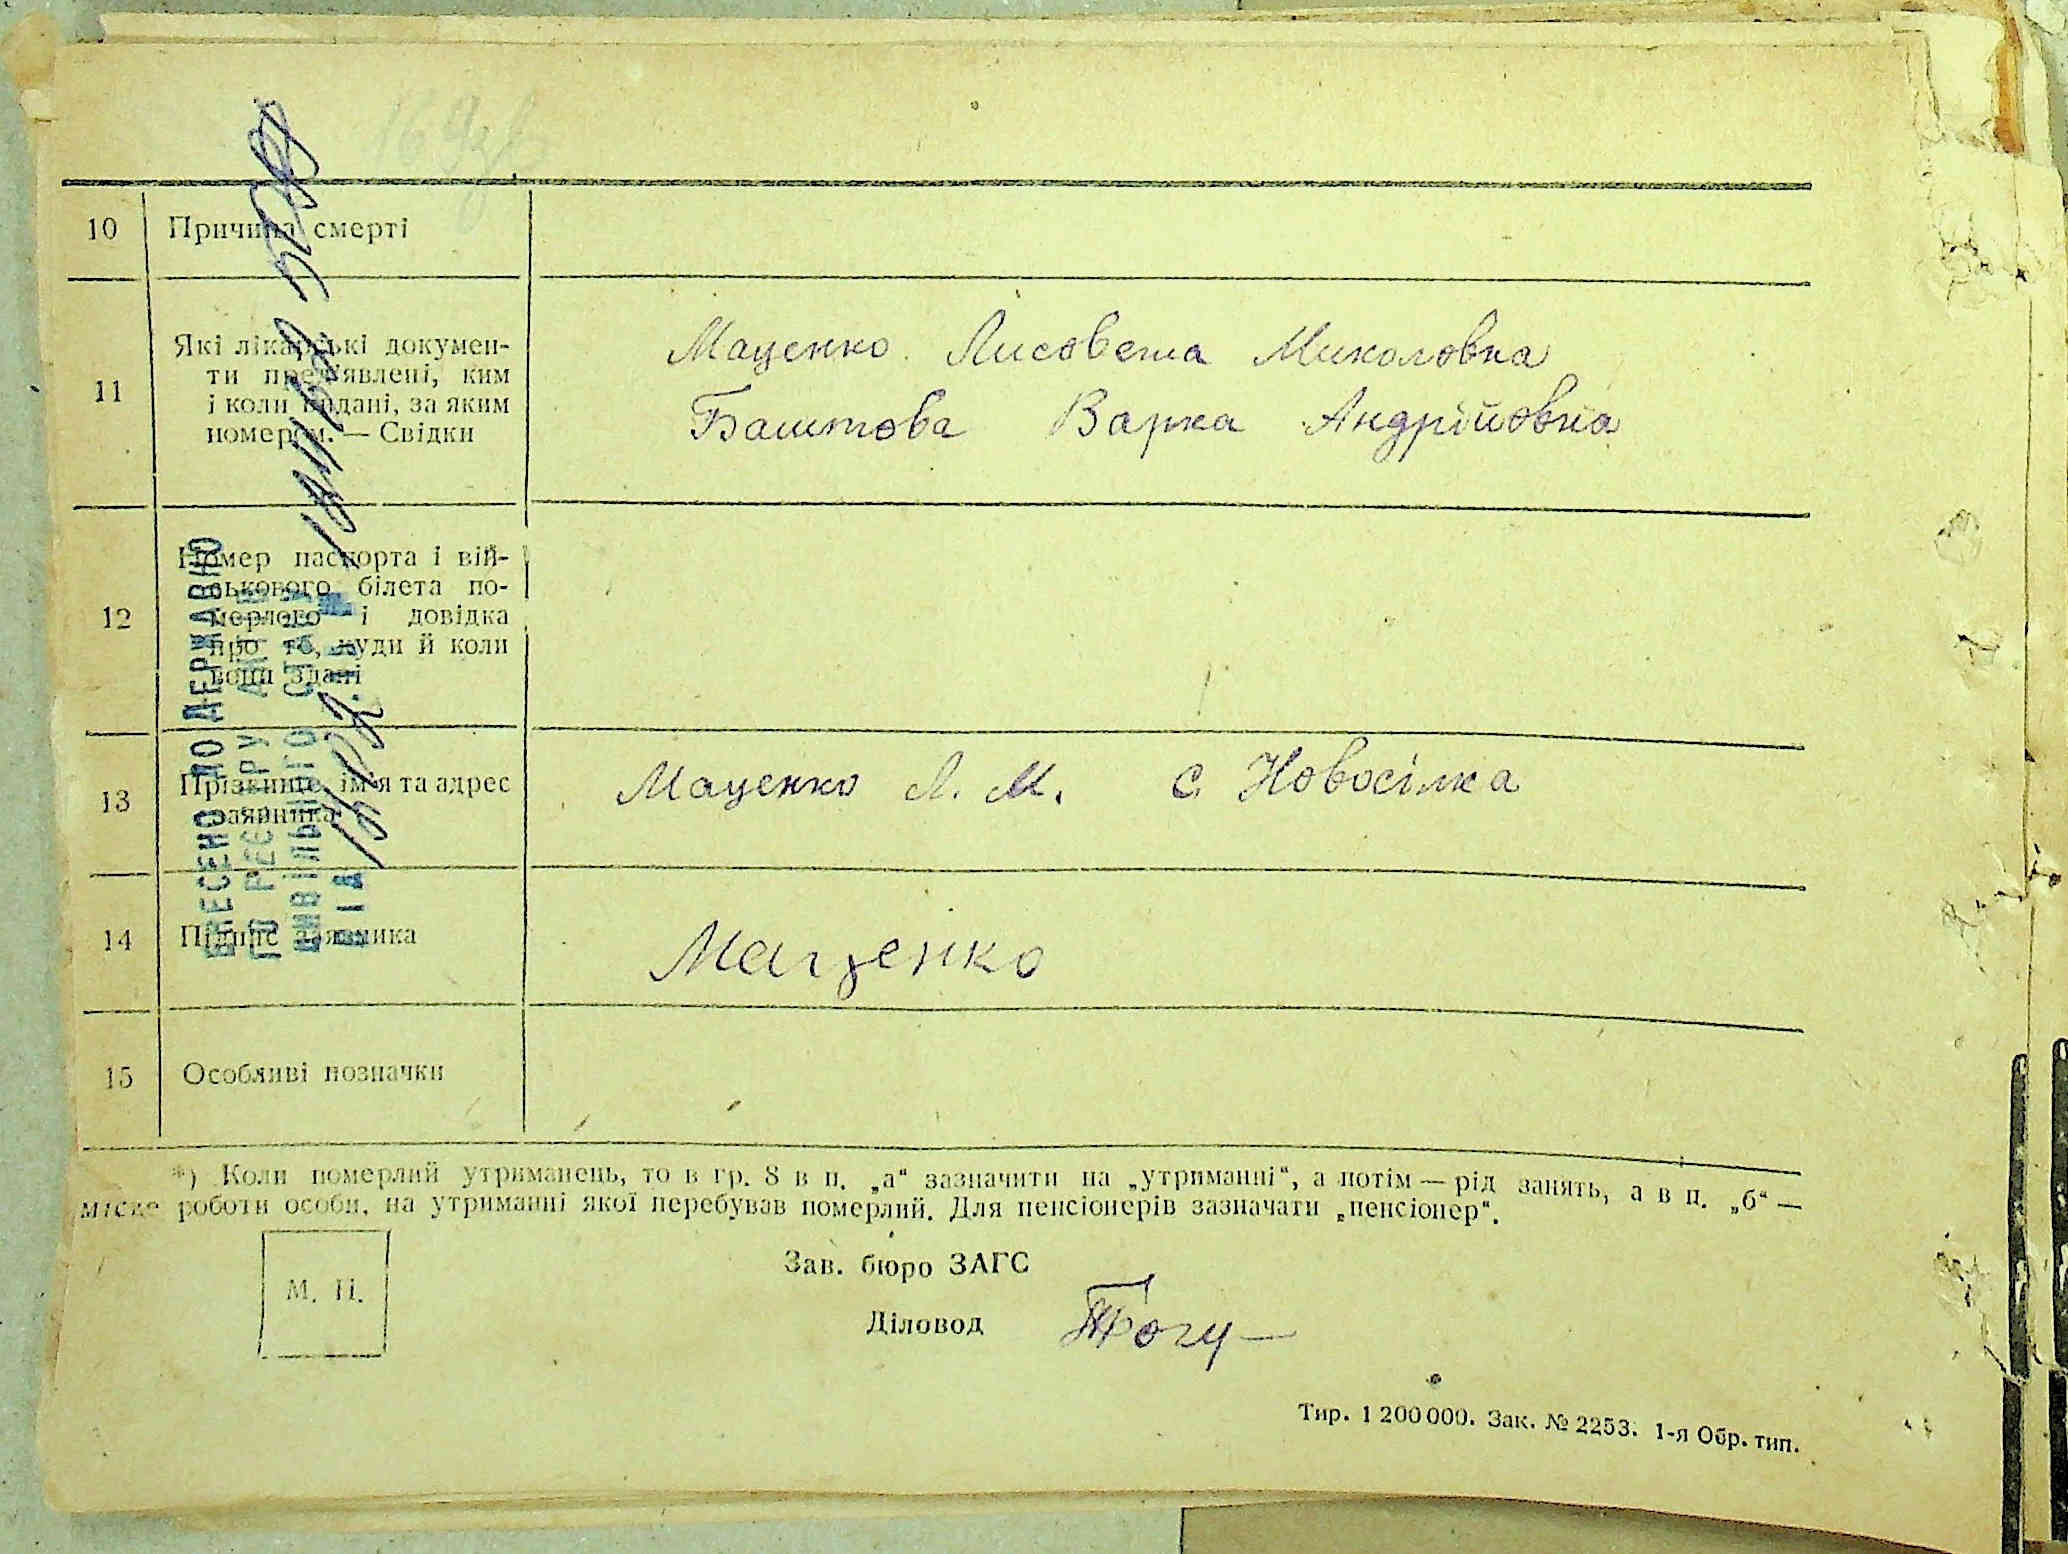 10 Причина смерті
11 Які лікарські докумен-
ти пред'явлені, ким
і коли видані, за яким
номером. — Свідки
Маценко Лисовета Миколовна
Баштова Варка Андрійовна
12 Номер паспорта і вій-
ськового білета по-
мерлого і довідка
про то, куди й коли
вони здані
13 Прізвище, ім'я та адрес
заявника
Маценко Л. М. с. Новосілка
14 Підпис заявника
Маценко
15 Особливі позначки
ВНЕСЕНО ДО ДЕРЖАВНО
ГО РЕЄСТРУ АКТІВ
ЦИВІЛЬНОГО СТАНУ
ВІД
*) Коли померлий утриманець, то в гр. 8 в п. „а“ зазначити на „утриманні“, а потім — рід занять, а в п. „б“ —
місце роботи особи, на утриманні якої перебував померлий. Для пенсіонерів зазначати „пенсіонер“.
М. П.
Зав. бюро ЗАГС
Діловод
Тир. 1 200 000. Зак. № 2253. 1-я Обр. тип.